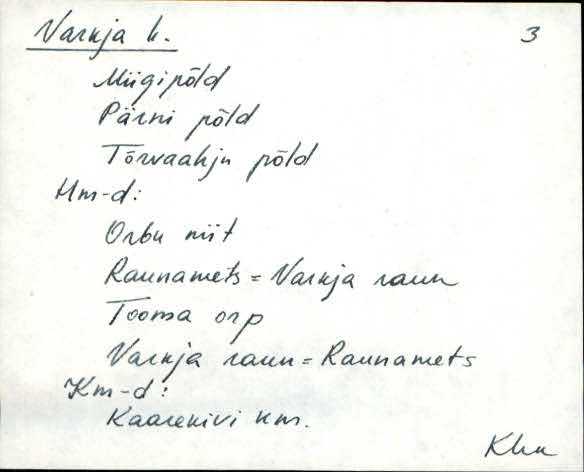 Varnja k. 3
Miigipõld
Pärni põld
Tõrvaahju põld
Hm-d:
Orbu niit
Raunamets = Varnja raun
Tooma orp
Varnja raun = Raunamets
Km-d:
Kaarekivi km.